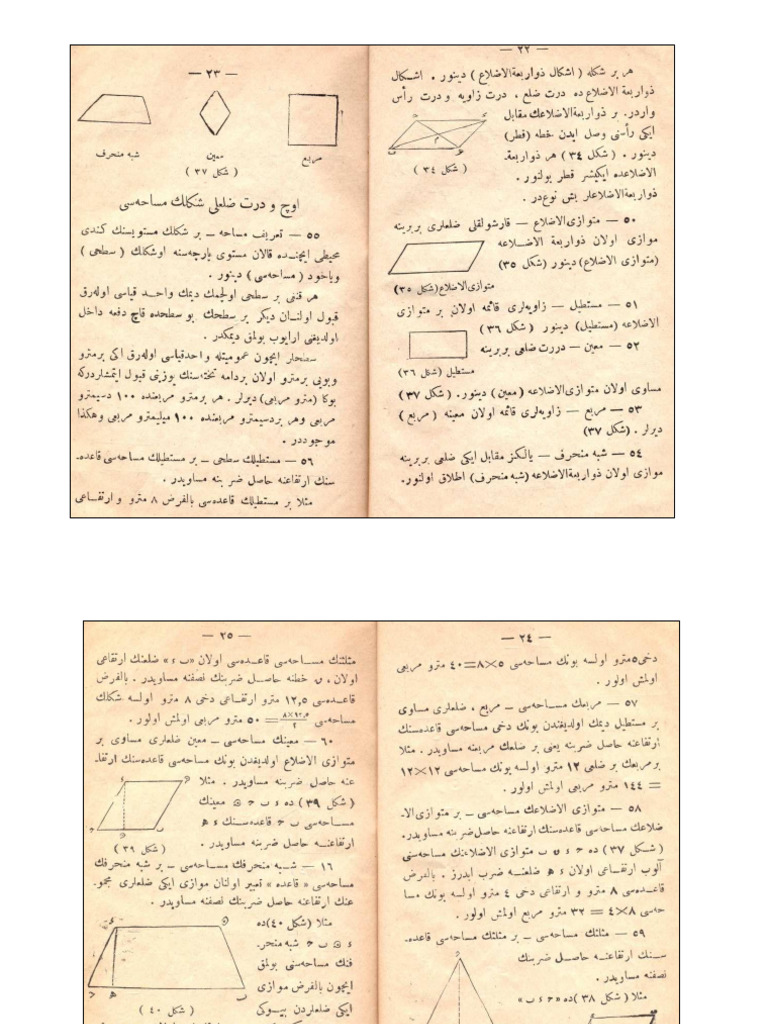 — ٢٢ —
هر بر شكله ( اشكال ذواربعة‌الاضلاع ) دينور . اشكال
ذواربعة الاضلاع ده درت ضلع ، درت زاويه و درت رأس
واردر. بر ذواربعة‌الاضلاعك مقابل
ايكى رأسنى وصل ايدن خطه (قطر)
دينور . ( شكل ٣٤ ) هر ذواربعة‌
الاضلاعده ايكيشر قطر بولنور .
( شكل ٣٤ )
ذواربعة‌الاضلاعلر بش نوع‌در .
٥٠ — متوازى‌الاضلاع — قارشولقلى ضلعلرى بربرينه
موازى اولان ذواربعة الاضلاعه
(متوازى الاضلاع) دينور (شكل ٣٥)
متوازى‌الاضلاع(شكل ٣٥)
٥١ — مستطيل — زاويه‌لرى قائمه اولان بر متوازى
الاضلاعه (مستطيل) دينور ( شكل ٣٦ )
٥٢ — معين — دررت ضلعى بربرينه
مستطيل (شكل ٣٦)
مساوى اولان متوازى‌الاضلاعه (معين) دينور. ( شكل ٣٧ )
٥٣ — مربع — زاويه‌لرى قائمه اولان معينه ( مربع )
ديرلر . (شكل ٣٧)
٥٤ — شبه منحرف — يالكز مقابل ايكى ضلعى بربرينه
موازى اولان ذواربعة‌الاضلاعه (شبه منحرف) اطلاق اولنور.
— ٢٣ —
مربع
معين
شبه منحرف
( شكل ٣٧ )
اوچ و درت ضلعلى شكلك مساحه‌سى
٥٥ — تعريف مساحه — بر شكلك مستويسنك كندى
محيطى ايچنده قالان مستوى پارچه‌سنه اوشكلك ( سطحى )
وياخود ( مساحه‌سى ) دينور .
هر قنغى بر سطحى اولچمك ديمك واحد قياسى اوله‌رق
قبول اولنان ديكر بر سطحك بو سطحده قاچ دفعه داخل
اولديغنى آرايوب بولمق ديمكدر .
سطحلر ايچون عموميتله واحدقياسى اوله‌رق اكى برمترو
وبويى برمترو اولان تخته‌سنك يوزينى قبول ايتمشلردركه
بوكا (مترو مربعى) ديرلر . هر برمترو مربعنده ١٠٠ دسيمترو
مربعى وهر بردسيمترو مربعنده ١٠٠ ميليمترو مربعى وهكذا
موجوددر .
٥٦ — مستطيلك سطحى — بر مستطيلك مساحه‌سى قاعده‌
سنك ارتفاعنه حاصل ضربنه مساويدر .
مثلا بر مستطيلك قاعده‌سى بالفرض ٨ مترو و ارتفاعى
— ٢٤ —
دخى ٥ مترو اولسه بونك مساحه‌سى ٥×٨=٤٠ مترو مربعى
اولمش اولور .
٥٧ — مربعك مساحه‌سى — مربع ، ضلعلرى مساوى
بر مستطيل ديمك اولديغندن بونك دخى مساحه‌سى قاعده‌سنك
ارتفاعنه حاصل ضربنه يعنى بر ضلعك مربعنه مساويدر . مثلا
بر مربعك بر ضلعى ١٢ مترو اولسه بونك مساحه‌سى ١٢×١٢
= ١٤٤ مترو مربعى اولمش اولور .
٥٨ — متوازى الاضلاعك مساحه‌سى — بر متوازى‌الا-
ضلاعك مساحه‌سى قاعده‌سنك ارتفاعنه حاصل ضربنه مساويدر .
( شكل ٣٧ ) ده متوازى الاضلاعنك مساحه‌سنى
آلوب ارتفاعى اولان ضلعنه ضرب ايدرز . بالفرض
قاعده‌سى ٨ مترو و ارتفاعى دخى ٤ مترو اولسه بونك مسا
حه‌سى ٨×٤ = ٣٢ مترو مربع اولمش اولور .
٥٩ — مثلثك مساحه‌سى — بر مثلثك مساحه‌سى قاعده‌
سنك ارتفاعنه حاصل ضربنك
نصفنه مساويدر .
مثلا ( شكل ٣٨ ) ده
— ٢٥ —
مثلثنك مساحه‌سى قاعده‌سى اولان ضلعنك ارتفاعى
اولان خطنه حاصل ضربنك نصفنه مساويدر . بالفرض
قاعده‌سى ١٢,٥ مترو ارتفاعى دخى ٨ مترو اولسه شكلك
مساحه‌سى ٨×١٢,٥/٢ = ٥٠ مترو مربعى اولمش اولور .
٦٠ — معينك مساحه‌سى — معين ضلعلرى مساوى بر
متوازى الاضلاع اولديغندن بونك مساحه‌سى قاعده‌سنك ارتفا-
عنه حاصل ضربنه مساويدر . مثلا
( شكل ٣٩ ) ده معينك
مساحه‌سى قاعده‌سنك
ارتفاعنه حاصل ضربنه مساويدر .
( شكل ٣٩ )
١٦ — شبه منحرفك مساحه‌سى — بر شبه منحرفك
مساحه‌سى « قاعده » تعبير اولنان موازى ايكى ضلعلرى مجمو-
عنك ارتفاعنه حاصل ضربنك نصفنه مساويدر .
مثلا (شكل ٤٠) ده
شبه منحر-
فنك مساحه‌سنى بولمق
ايچون بالفرض موازى
ايكى ضلعلردن بيوكى
( شكل ٤٠ )